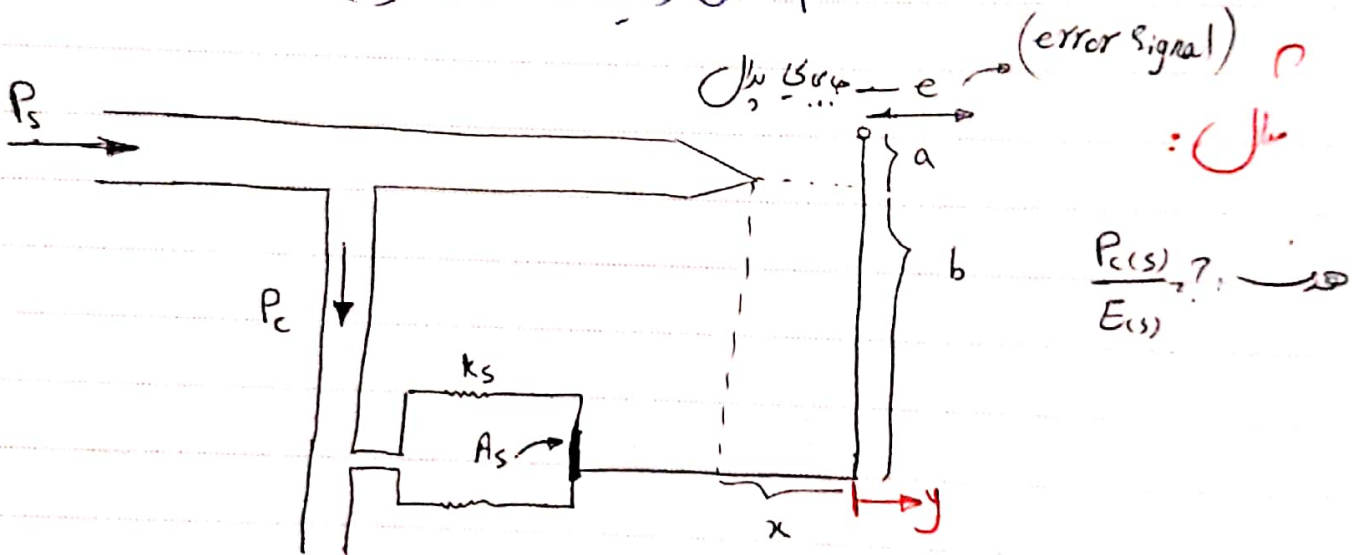 (error signal)
جابجایی پدال — e
مثال :
Ps
a
b
Pc(s) / E(s) = ? هدف
Pc
ks
As
x
y